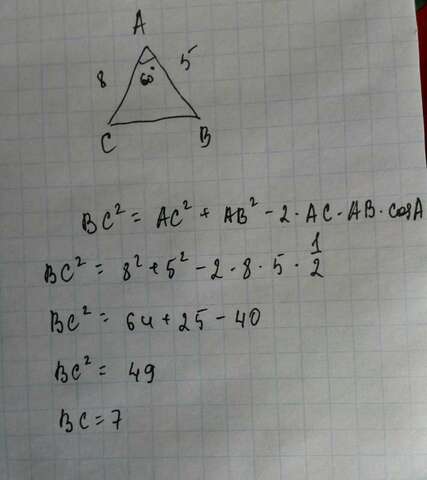 A
8 60° 5
C B
BC² = AC² + AB² - 2 · AC · AB · cosA
BC² = 8² + 5² - 2 · 8 · 5 · 1/2
BC² = 64 + 25 - 40
BC² = 49
BC = 7